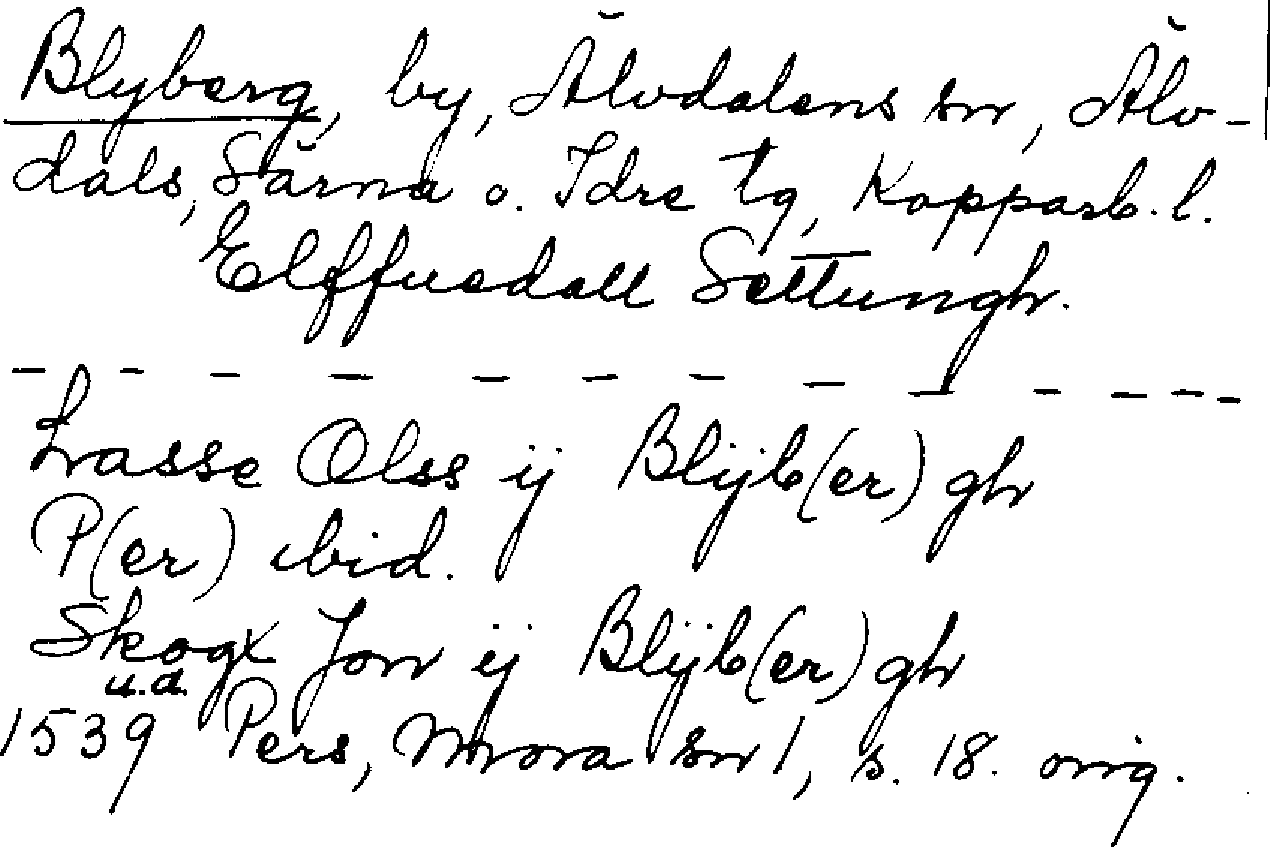 Blyberg, by, Älvdalens sn, Älv-
dals, Särna o. Idre tg, Kopparb. l.
Elffuedall Settungh.
Lasse Olss ij Blijb(er)gh
P(er) ibid.
Skogx Jon ij Blijb(er)gh
u.d.
1539 Pers, Mora sn 1, s. 18. orig.